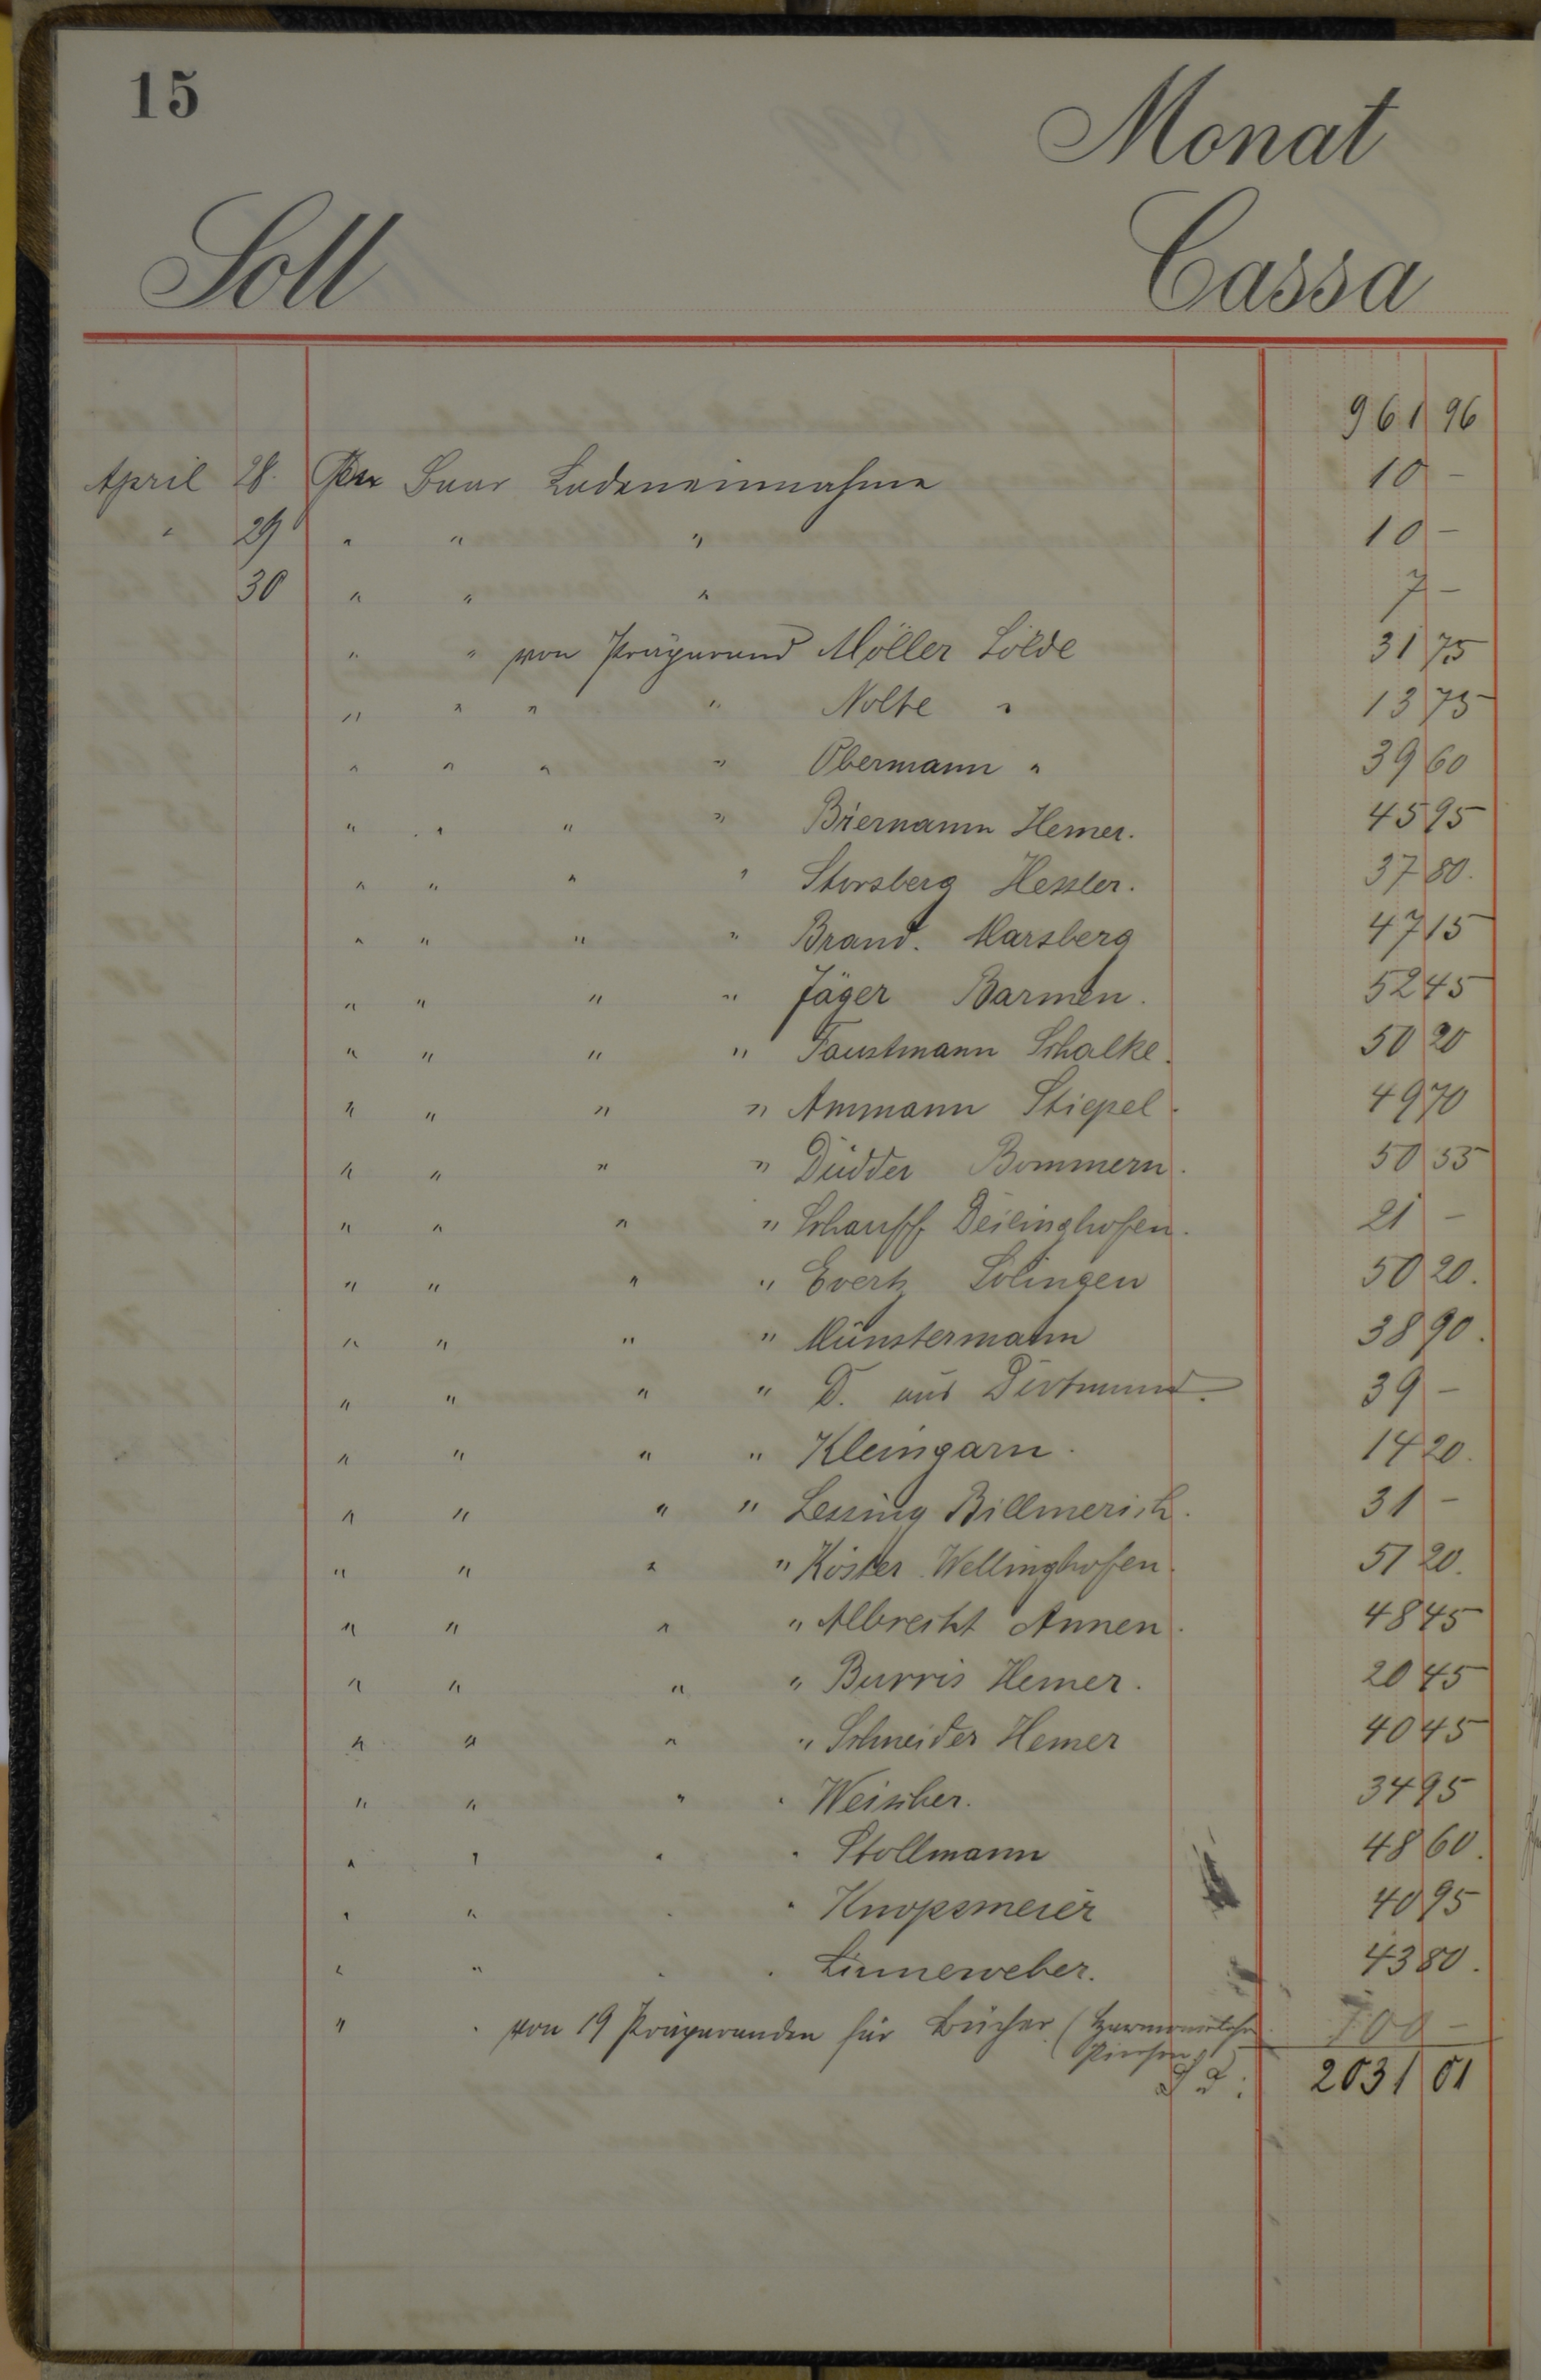 15
Monat
Soll
Cassa
961 96
April 28. Per Baar Ladeneinnahme 10 -
" 29 " " " 10 -
30 " " " 7 -
" " von Präparand Möller Sölde 31 75
" " " " Nolte " 13 75
" " " " Obermann " 39 60
" " " " Biermann Hemer. 45 95
" " " " Storsberg Hessler. 37 80.
" " " " Brand. Marsberg 47 15
" " " " Jäger Barmen. 52 45
" " " " Faustmann Schalke. 50 20
" " " " Ammann Stiepel. 49 70
" " " " Düdder Bommern. 50 55
" " " " Schauff Deilinghofen. 21 -
" " " " Evertz Solingen 50 20.
" " " " Münstermann 38 90.
" " " " D. aus Dortmund. 39 -
" " " " Kleingarn. 14 20.
" " " " Lessing Billmerich. 31 -
" " " " Köster. Wellinghofen. 51 20.
" " " " Albrecht Annen. 48 45
" " " " Burris Hemer. 20 45
" " " " Schneider Hemer 40 45
" " " " Weischer. 34 95
" " " " Stollmann 48 60.
" " " " Knopsmeier 40 95
" " " " Linneweber. 43 80.
" " von 19 Präparanden für Bücher (Harmonielehre
Piersen) 700 -
2031 01